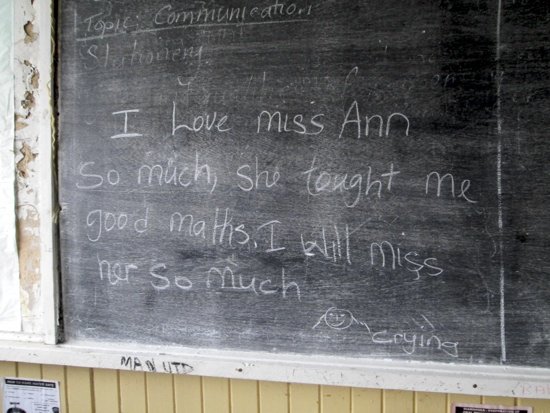 Topic: Communication
Stationery
I Love miss Ann
So much, She tought me
good maths. I will miss
her so much
crying
MAN UTD